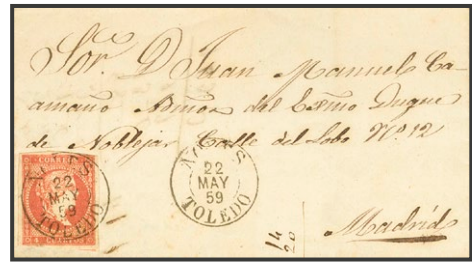 Sor. D Juan Manuel Ca-
amaño Admor del Exmo Duque
de Noblejas Calle del Lobo No. 12
CORREOS
22
MAY
59
TOLEDO
22
MAY
59
TOLEDO
14
20
Madrid